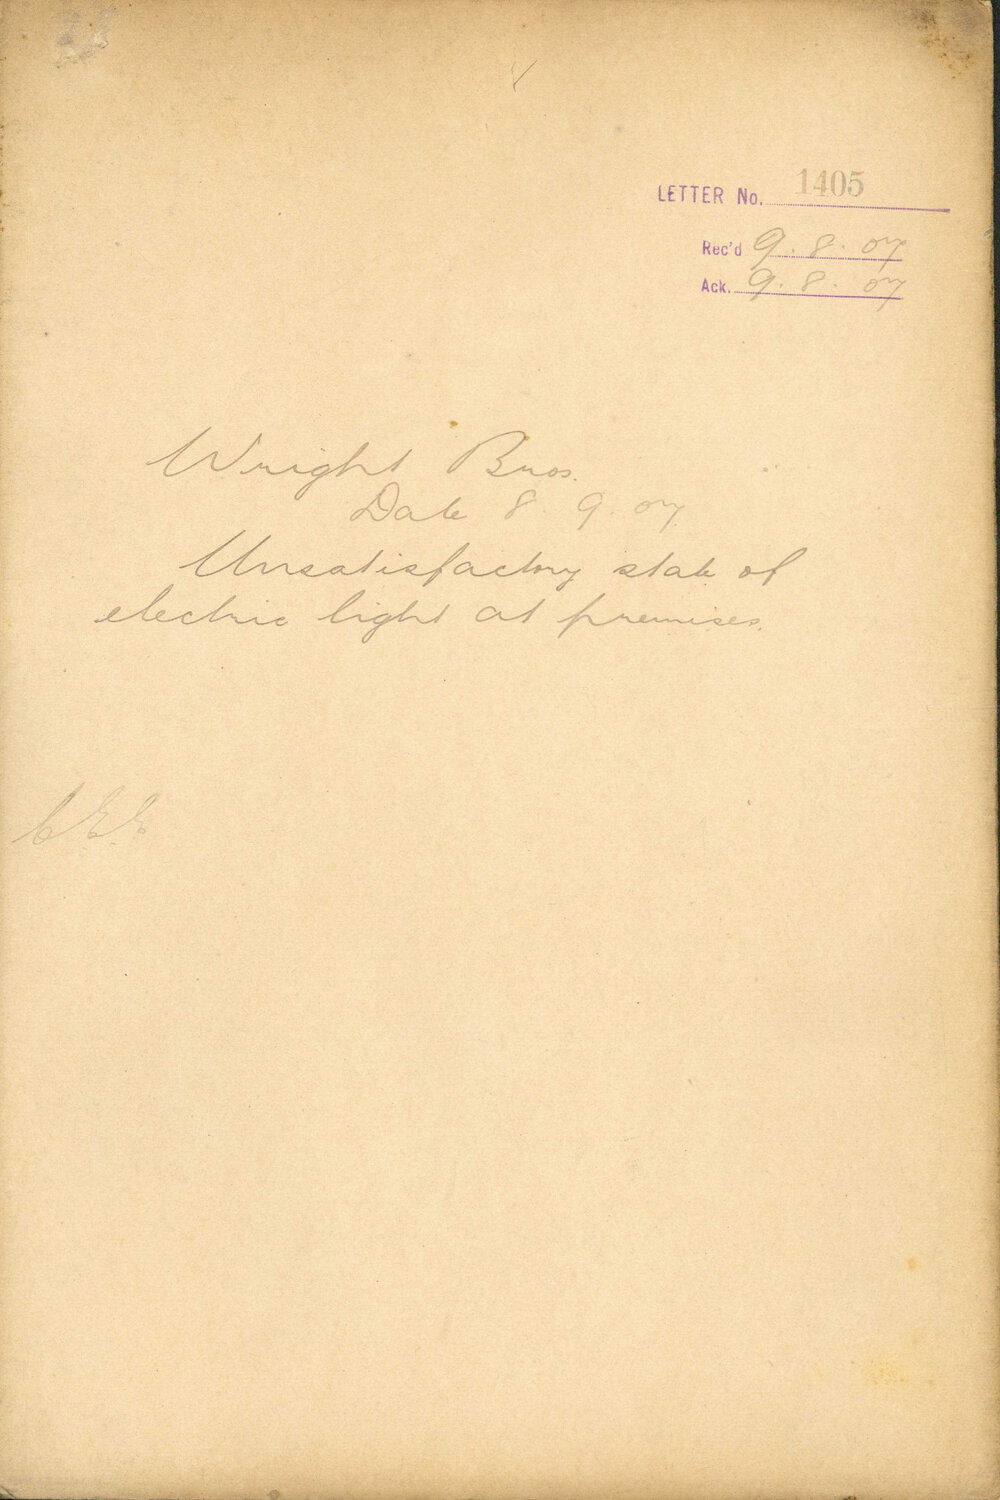 LETTER No. 1405
Rec'd 9.8.07
Ack. 9.8.07
Wright Bros.
Date 8.9.07
Unsatisfactory state of
electric light at premises.